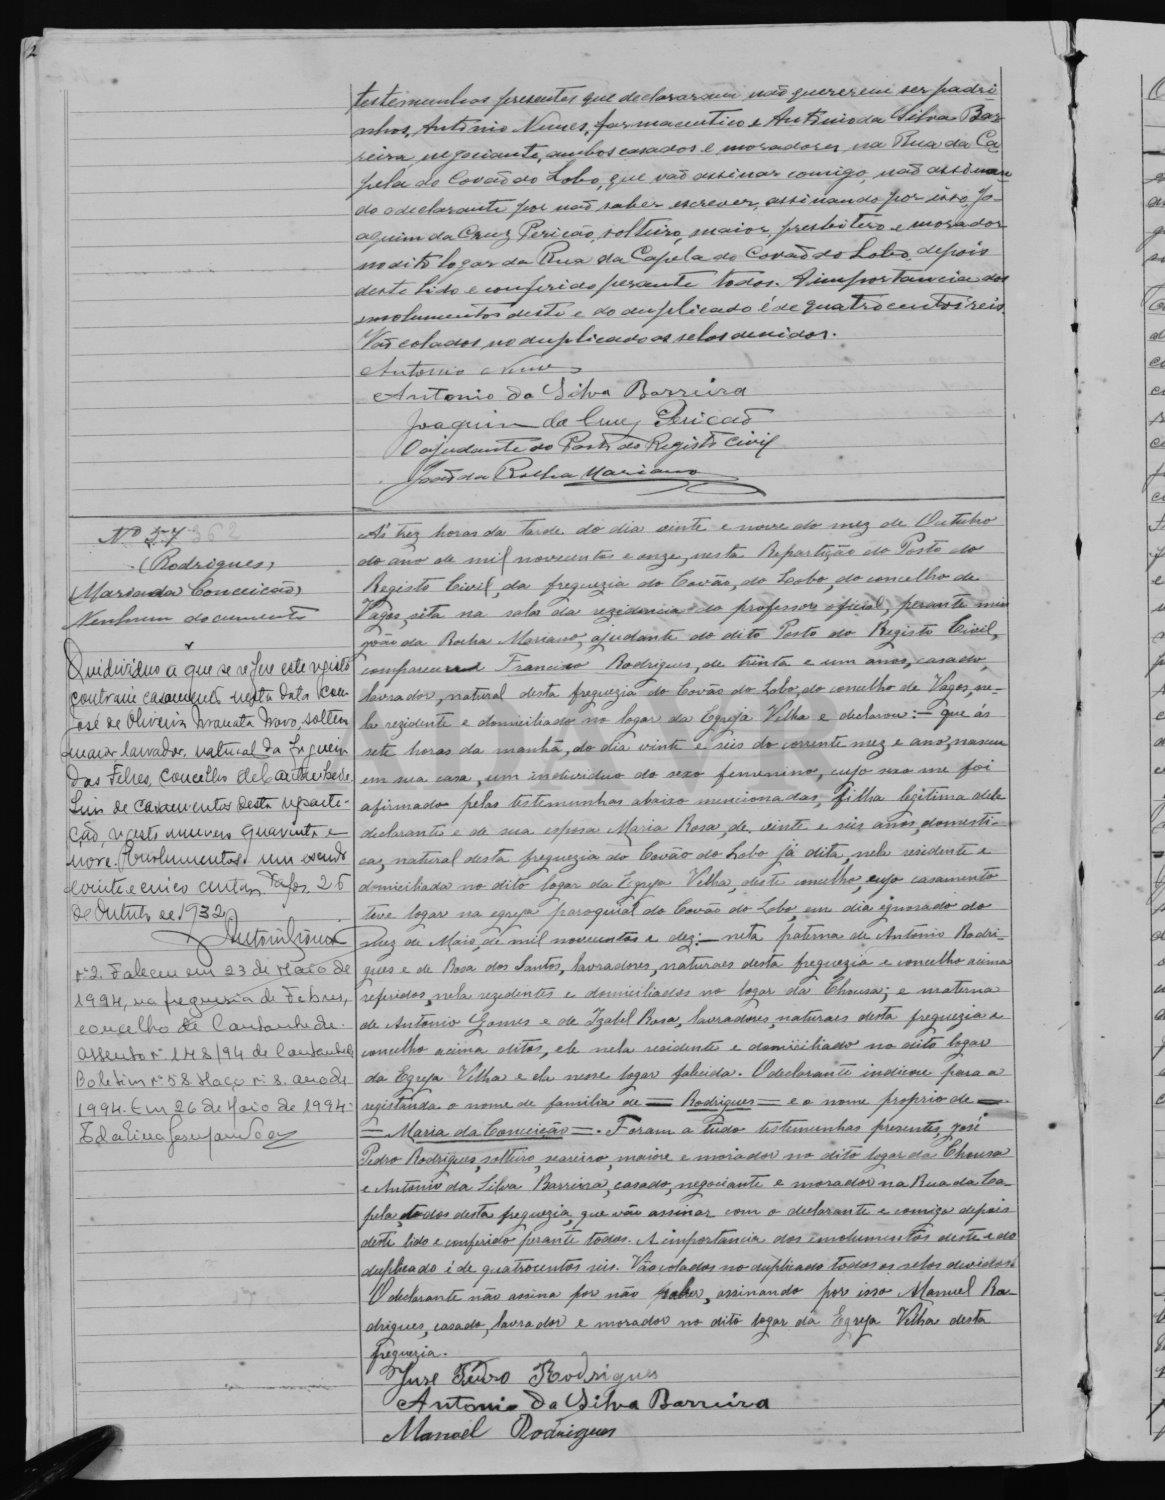 2
testemunhas presentes que declararam não quererem ser padri
nhos, Antonio Nunes, farmaceutico e Antonio da Silva Bar
reira, negociante, ambos casados e moradores na Rua da Ca
pela do Covão do Lobo, que vão assinar comigo, não assinan
do o declarante por não saber escrever, assinando por isso, Jo-
aquim da Cruz Pericão, solteiro, maior, presbitero e morador
no dito logar da Rua da Capela do Covão do Lobo, depois
deste lido e conferido perante todos. A importancia dos
emolumentos deste e do duplicado é de quatrocentos reis.
Vão colados no duplicado os selos devidos.
Antonio Nunes
Antonio da Silva Barreira
Joaquim da Cruz Pericão
O ajudante do Posto do Registo Civil
João da Rocha Mariano
Nº 57 362
(Rodrigues)
(Maria da Conceição)
Nenhum documento
O individuo a que se refere este registo
contraiu casamento nesta data com
José de Oliveira Manata Novo, solteiro
maior lavrador, natural da Figueira
das Febres, concelho de Cantanhede.
Livro de casamentos desta reparti-
ção, registo numero quarenta e
nove. Emolumentos um escudo
e vinte e cinco centavos. Vagos, 26
de Outubro de 1932
nº 2. Faleceu em 23 de Maio de
1994, na freguesia de Febres,
concelho de Cantanhede.
Assento nº 148/94 de Cantanhede
Boletim nº 58 Maço nº 8. ano de
1994. Em 26 de Maio de 1994.
A's trez horas da tarde do dia vinte e nove do mez de Outubro
do ano de mil novecentos e onze, nesta Repartição do Posto do
Registo Civil, da freguezia do Covão, do Lobo, do concelho de
Vagos, sita na sala da rezidencia do professor oficial, perante mim
João da Rocha Mariano, ajudante do dito Posto do Registo Civil,
compareceu Francisco Rodrigues, de trinta e um anos, casado,
lavrador, natural desta freguezia do Covão do Lobo, do concelho de Vagos, ne-
la rezidente e domiciliado no logar da Egreja Velha e declarou: — que ás
sete horas da manhã, do dia vinte e seis do corrente mez e ano, nasceu
em sua casa, um individuo do sexo femenino, cujo sexo me foi
afirmado pelas testemunhas abaixo mencionadas, filha legitima dele
declarante e de sua esposa Maria Rosa, de vinte e seis anos, domesti-
ca, natural desta freguezia do Covão do Lobo já dita, nela residente e
domiciliada no dito logar da Egreja Velha, deste concelho, cujo casamento
teve logar na egreja paroquial do Covão do Lobo, em dia ignorado do
mez de Maio, de mil novecentos e dez: — neta paterna de Antonio Rodri-
gues e de Rosa dos Santos, lavradores, naturaes desta freguezia e concelho acima
referidos, nela rezidentes e domiciliados no logar da Chousa; e materna
de Antonio Gomes e de Izabel Rosa, lavradores, naturaes desta freguezia e
concelho acima ditos, ele nela residente e domiciliado no dito logar
da Egreja Velha e ela nesse logar falecida. O declarante indicou para a
registanda o nome de familia de = Rodrigues = e o nome proprio de =
= Maria da Conceição =. Foram a tudo testemunhas presentes, José
Pedro Rodrigues, solteiro, seareiro, maior e morador no dito logar da Chousa
e Antonio da Silva Barreira, casado, negociante e morador na Rua da Ca-
pela, todos desta freguezia, que vão assinar com o declarante e comigo depois
deste lido e conferido perante todos. A importancia dos emolumentos deste e do
duplicado é de quatrocentos reis. Vão colados no duplicado todos os selos devidos.
O declarante não assina por não saber, assinando por isso Manuel Ro-
drigues, casado, lavrador e morador no dito logar da Egreja Velha desta
freguezia.
José Pedro Rodrigues
Antonio da Silva Barreira
Manoel Rodrigues